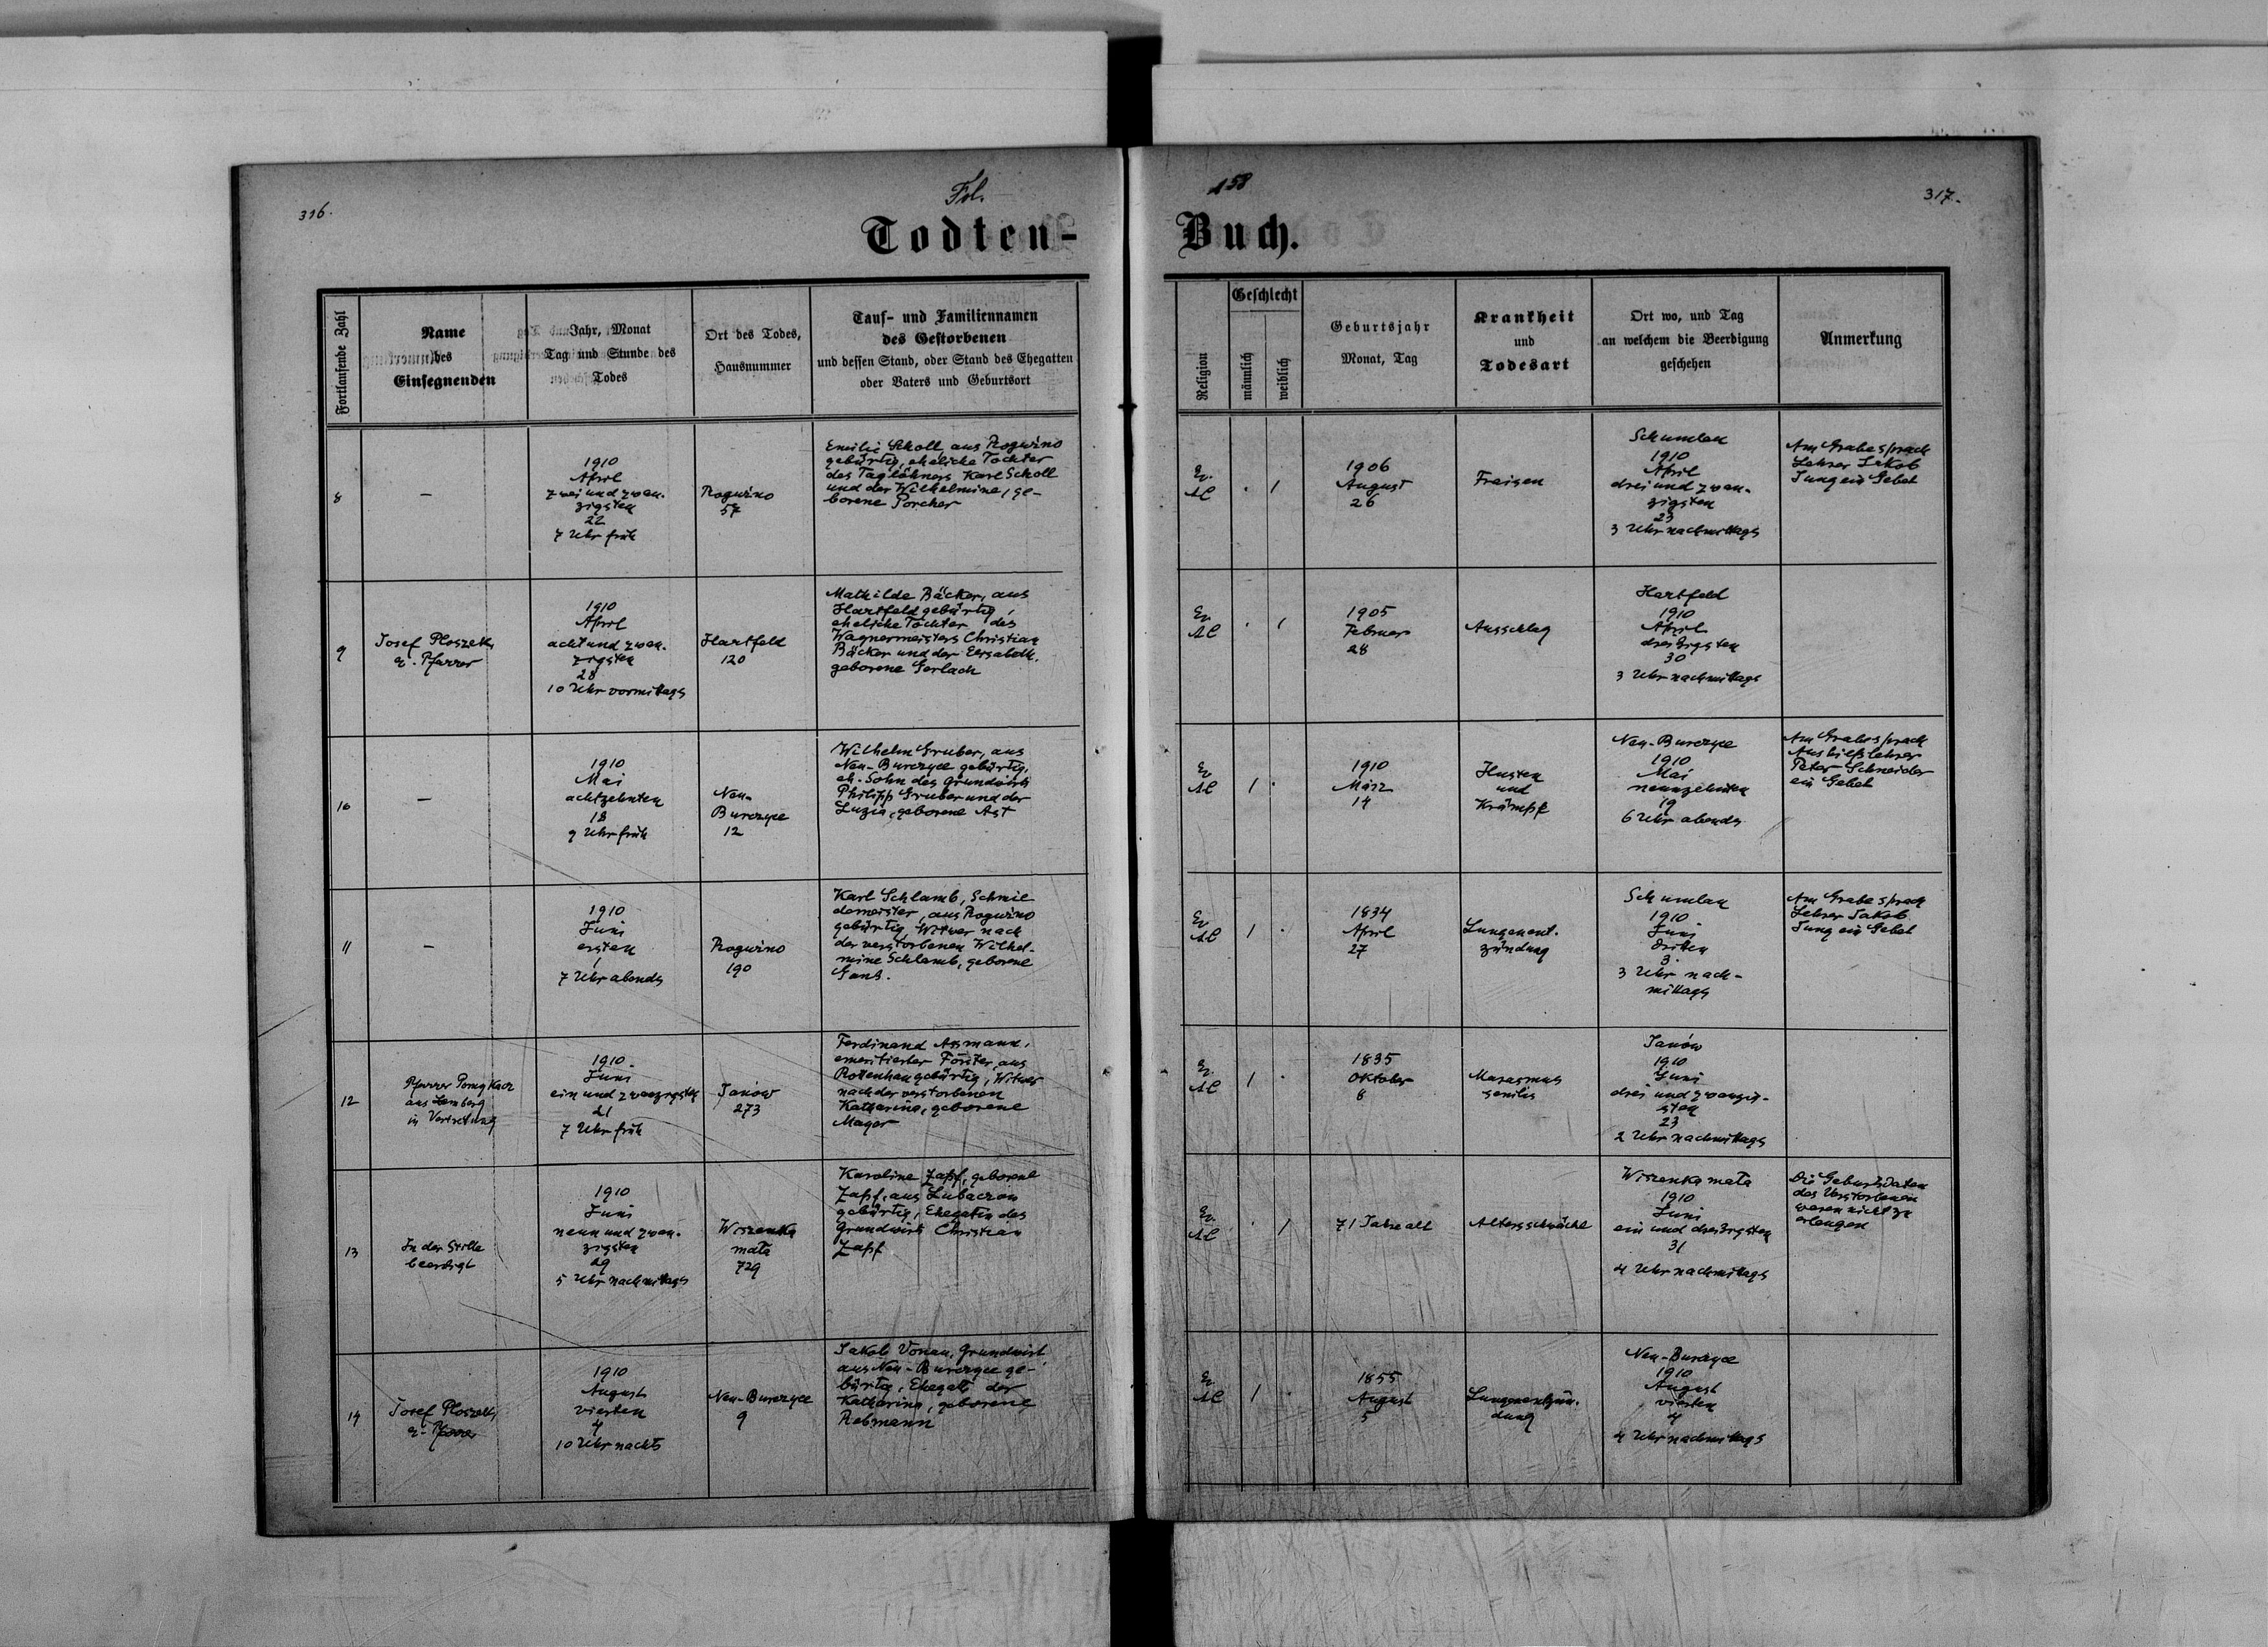 316.
Fol.
158
317.
Todten-
Buch.
Fortlaufende Zahl
Name
des
Einsegnenden
Jahr, Monat
Tag und Stunde des
Todes
Ort des Todes,
Hausnummer
Tauf- und Familiennamen
des Gestorbenen
und dessen Stand, oder Stand des Ehegatten
oder Vaters und Geburtsort
Religion
Geschlecht
männlich
weiblich
Geburtsjahr
Monat, Tag
Krankheit
und
Todesart
Ort wo, und Tag
an welchem die Beerdigung
geschehen
Anmerkung
8
—
1910
April
zwei und zwan-
zigsten
22
7 Uhr früh
Rogużno
57
Emilie Scholl, aus Rogużno
gebürtig, eheliche Tochter
des Taglöhners Karl Scholl
und der Wilhelmine, ge-
borene Porcher
Ev.
AC
. 1
1906
August
26
Fraisen
Schumlau
1910
April
drei und zwan-
zigsten
23
3 Uhr nachmittags
Am Grabe sprach
Lehrer Jakob
Jung ein Gebet
9
Josef Ploszek
ev. Pfarrer
1910
April
acht und zwan-
zigsten
28
10 Uhr vormittags
Hartfeld
120
Mathilde Bäcker, aus
Hartfeld gebürtig,
eheliche Tochter des
Wagnermeisters Christian
Bäcker und der Elisabeth,
geborene Gerlach
Ev.
AC
. 1
1905
Februar
28
Ausschlag
Hartfeld
1910
April
dreißigsten
30
3 Uhr nachmittags
10
—
1910
Mai
achtzehnten
18
9 Uhr früh
Neu-
Burczyce
12
Wilhelm Gruber, aus
Neu-Burczyce gebürtig,
eh. Sohn des Grundwirts
Philipp Gruber und der
Luzia, geborene Ast
Ev.
AC
1 .
1910
März
14
Husten
und
Krämpfe
Neu-Burczyce
1910
Mai
neunzehnten
19
6 Uhr abends
Am Grabe sprach
Aushilfslehrer
Peter Schneider
ein Gebet
11
—
1910
Juni
ersten
1
7 Uhr abends
Rogużno
190
Karl Schlamb, Schmie
demeister, aus Rogużno
gebürtig, Witwer nach
der verstorbenen Wilhel-
mine Schlamb, geborene
Ev.
AC
1 .
1834
April
27
Lungenent-
zündung
Schumlau
1910
Juni
dritten
3.
3 Uhr nach-
mittags
Am Grabe sprach
Lehrer Jakob
Jung ein Gebet
12
Pfarrer
aus Lemberg
in Vertretung
1910
Juni
ein und zwanzigsten
21
7 Uhr früh
Janow
273
Ferdinand Assmann,
emeritierter Förster, aus
Rottenhan gebürtig, Witwer
nach der verstorbenen
Katharina, geborene
Mager
Ev.
AC
1 .
1835
Oktober
8
Marasmus
senilis
Janów
1910
Juni
drei und zwanzig-
sten
23
2 Uhr nachmittags
13
In der Stille
beerdigt
1910
Juni
neun und zwan-
zigsten
29
5 Uhr nachmittags
Wiszenka
mała
729
Karoline Zapf, geborene
Zapf, aus Lubaczow
gebürtig, Ehegatin des
Grundwirts Christian
Zapf
Ev.
AC
. 1
71 Jahre alt
Altersschwäche
Wiszenka mała
1910
Juni
ein und dreißigsten
31
4 Uhr nachmittags
Die Geburtsdaten
des Verstorbenen
waren nicht zu
erlangen
14
Josef Ploszek
ev. Pfarrer
1910
August
vierten
4
10 Uhr nachts
Neu-Burczyce
9
Jakob Vonau, Grundwirt
aus Neu-Burczyce ge-
bürtig, Ehegatte der
Katharina, geborene
Rebmann
Ev.
AC
1 .
1855
August
5
Lungenentzün-
dung
Neu-Burczyce
1910
August
vierten
4
4 Uhr nachmittags